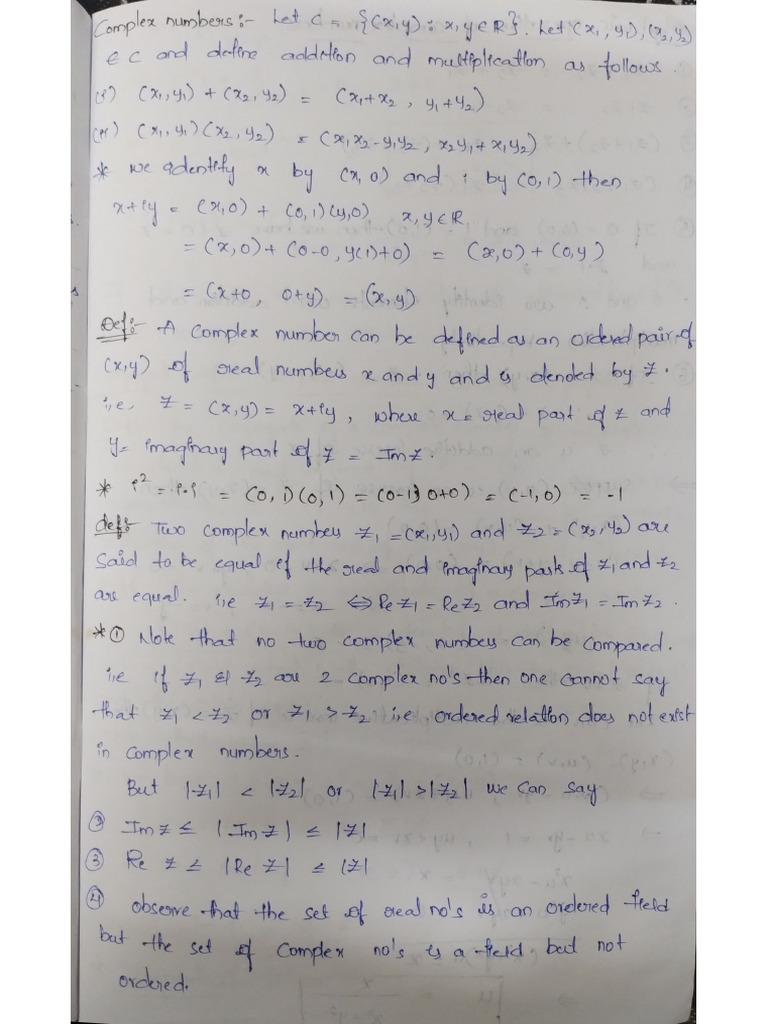 Complex numbers:- Let C = {(x,y) : x, y ∈ R}. Let (x₁, y₁), (x₂, y₂)
∈ C and define addition and multiplication as follows.
(i) (x₁, y₁) + (x₂, y₂) = (x₁+x₂, y₁+y₂)
(ii) (x₁, y₁) (x₂, y₂) = (x₁x₂-y₁y₂, x₂y₁+x₁y₂)
* we identify x by (x, 0) and i by (0, 1) then
x+iy = (x,0) + (0,1)(y,0) x, y ∈ R
= (x,0) + (0-0, y(1)+0) = (x,0) + (0,y)
= (x+0, 0+y) = (x,y)
Def:- A complex number can be defined as an ordered pair of
(x,y) of real numbers x and y and is denoted by z.
i,e, z = (x,y) = x+iy, where x = real part of z and
y = imaginary part of z = Im z.
* i² = i.i = (0,1)(0,1) = (0-1, 0+0) = (-1,0) = -1
def:- Two complex numbers z₁ = (x₁,y₁) and z₂ = (x₂, y₂) are
said to be equal if the real and imaginary parts of z₁ and z₂
are equal. i,e z₁ = z₂ ⇔ Re z₁ = Re z₂ and Im z₁ = Im z₂.
* ① Note that no two complex numbers can be compared.
i,e if z₁ & z₂ are 2 complex no's then one cannot say
that z₁ < z₂ or z₁ > z₂ i,e ordered relation does not exist
in complex numbers.
But |z₁| < |z₂| or |z₁| > |z₂| we can say
② Im z ≤ |Im z| ≤ |z|
③ Re z ≤ |Re z| ≤ |z|
④ observe that the set of real no's is an ordered field
but the set of complex no's is a field but not
ordered.